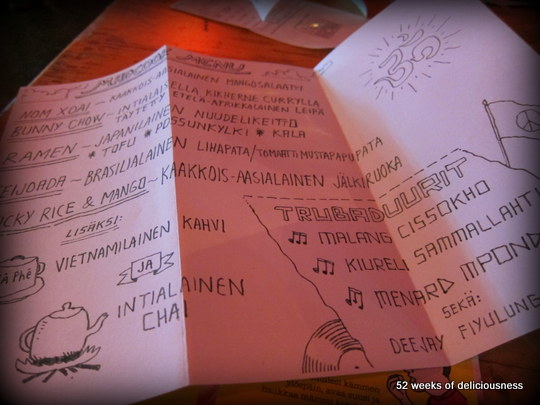 NOM XOAI - KAAKKOIS-AASIALAINEN MANGOSALAATTI
BUNNY CHOW - INTIALAISELLA KIKHERNE CURRYLLA
TÄYTETTY ETELÄ-AFRIKKALAINEN LEIPÄ
RAMEN - JAPANILAINEN NUUDELIKEITTO
* TOFU * POSSUNKYLKI * KALA
FEIJOADA - BRASILIALAINEN LIHAPATA/TOMAATTIMUSTAPAPUPATA
STICKY RICE & MANGO - KAAKKOIS-AASIALAINEN JÄLKIRUOKA
LISÄKSI:
VIETNAMILAINEN KAHVI
CÀ PHÊ
JA
INTIALAINEN
CHAI
TRUBADUURIT
MALANG CISSOKHO
KIURELI SAMMALLAHTI
MENARD MPOND
SEKÄ:
DEEJAY FIYULUNG
52 weeks of deliciousness